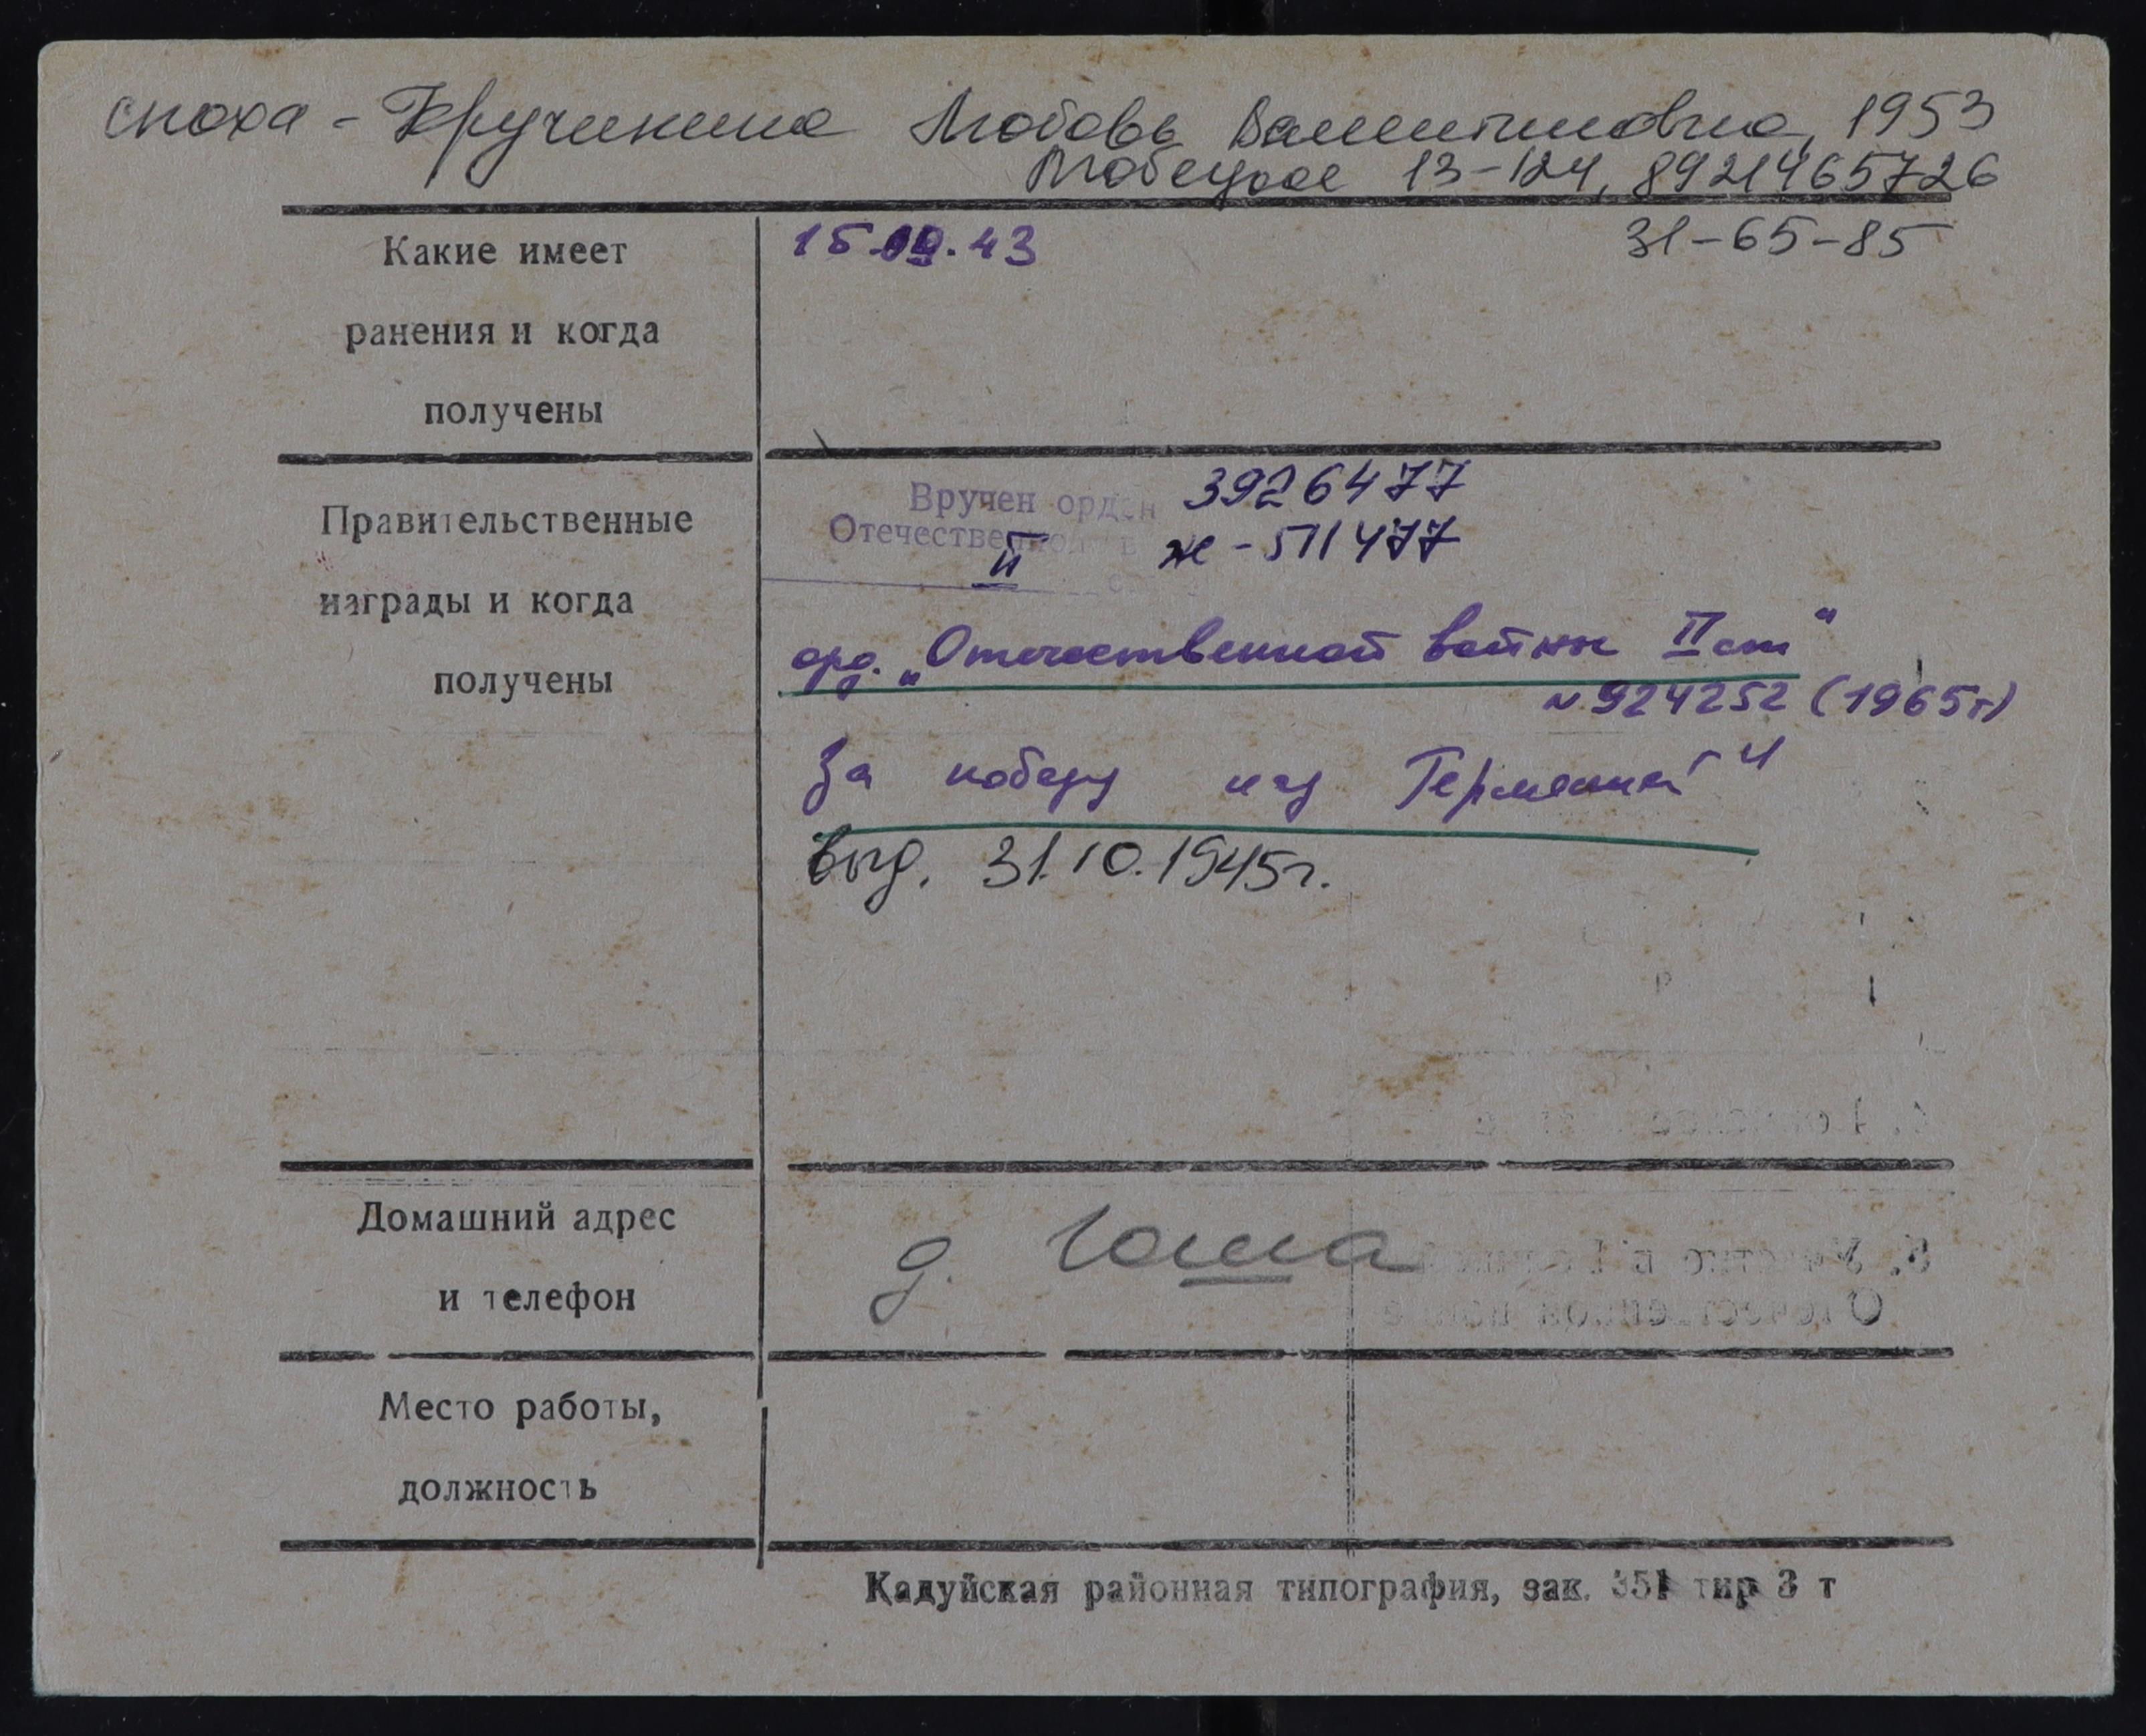 сноха - Кручинина Любовь Валентиновна, 1953
Любецкая 13-124, 8921465726
31-65-85
Какие имеет
ранения и когда
получены
15.09.43
Правительственные
награды и когда
получены
Вручен орден 3926477
Отечественной в
II ж-511477
орд. „Отечественной войны II ст“
N 924252 (1965г)
За победу над Германией"
выд. 31.10.1945г.
Домашний адрес
и телефон
д. Гоша
Место работы,
должность
Кадуйская районная типография, зак. 351 тир 3 т